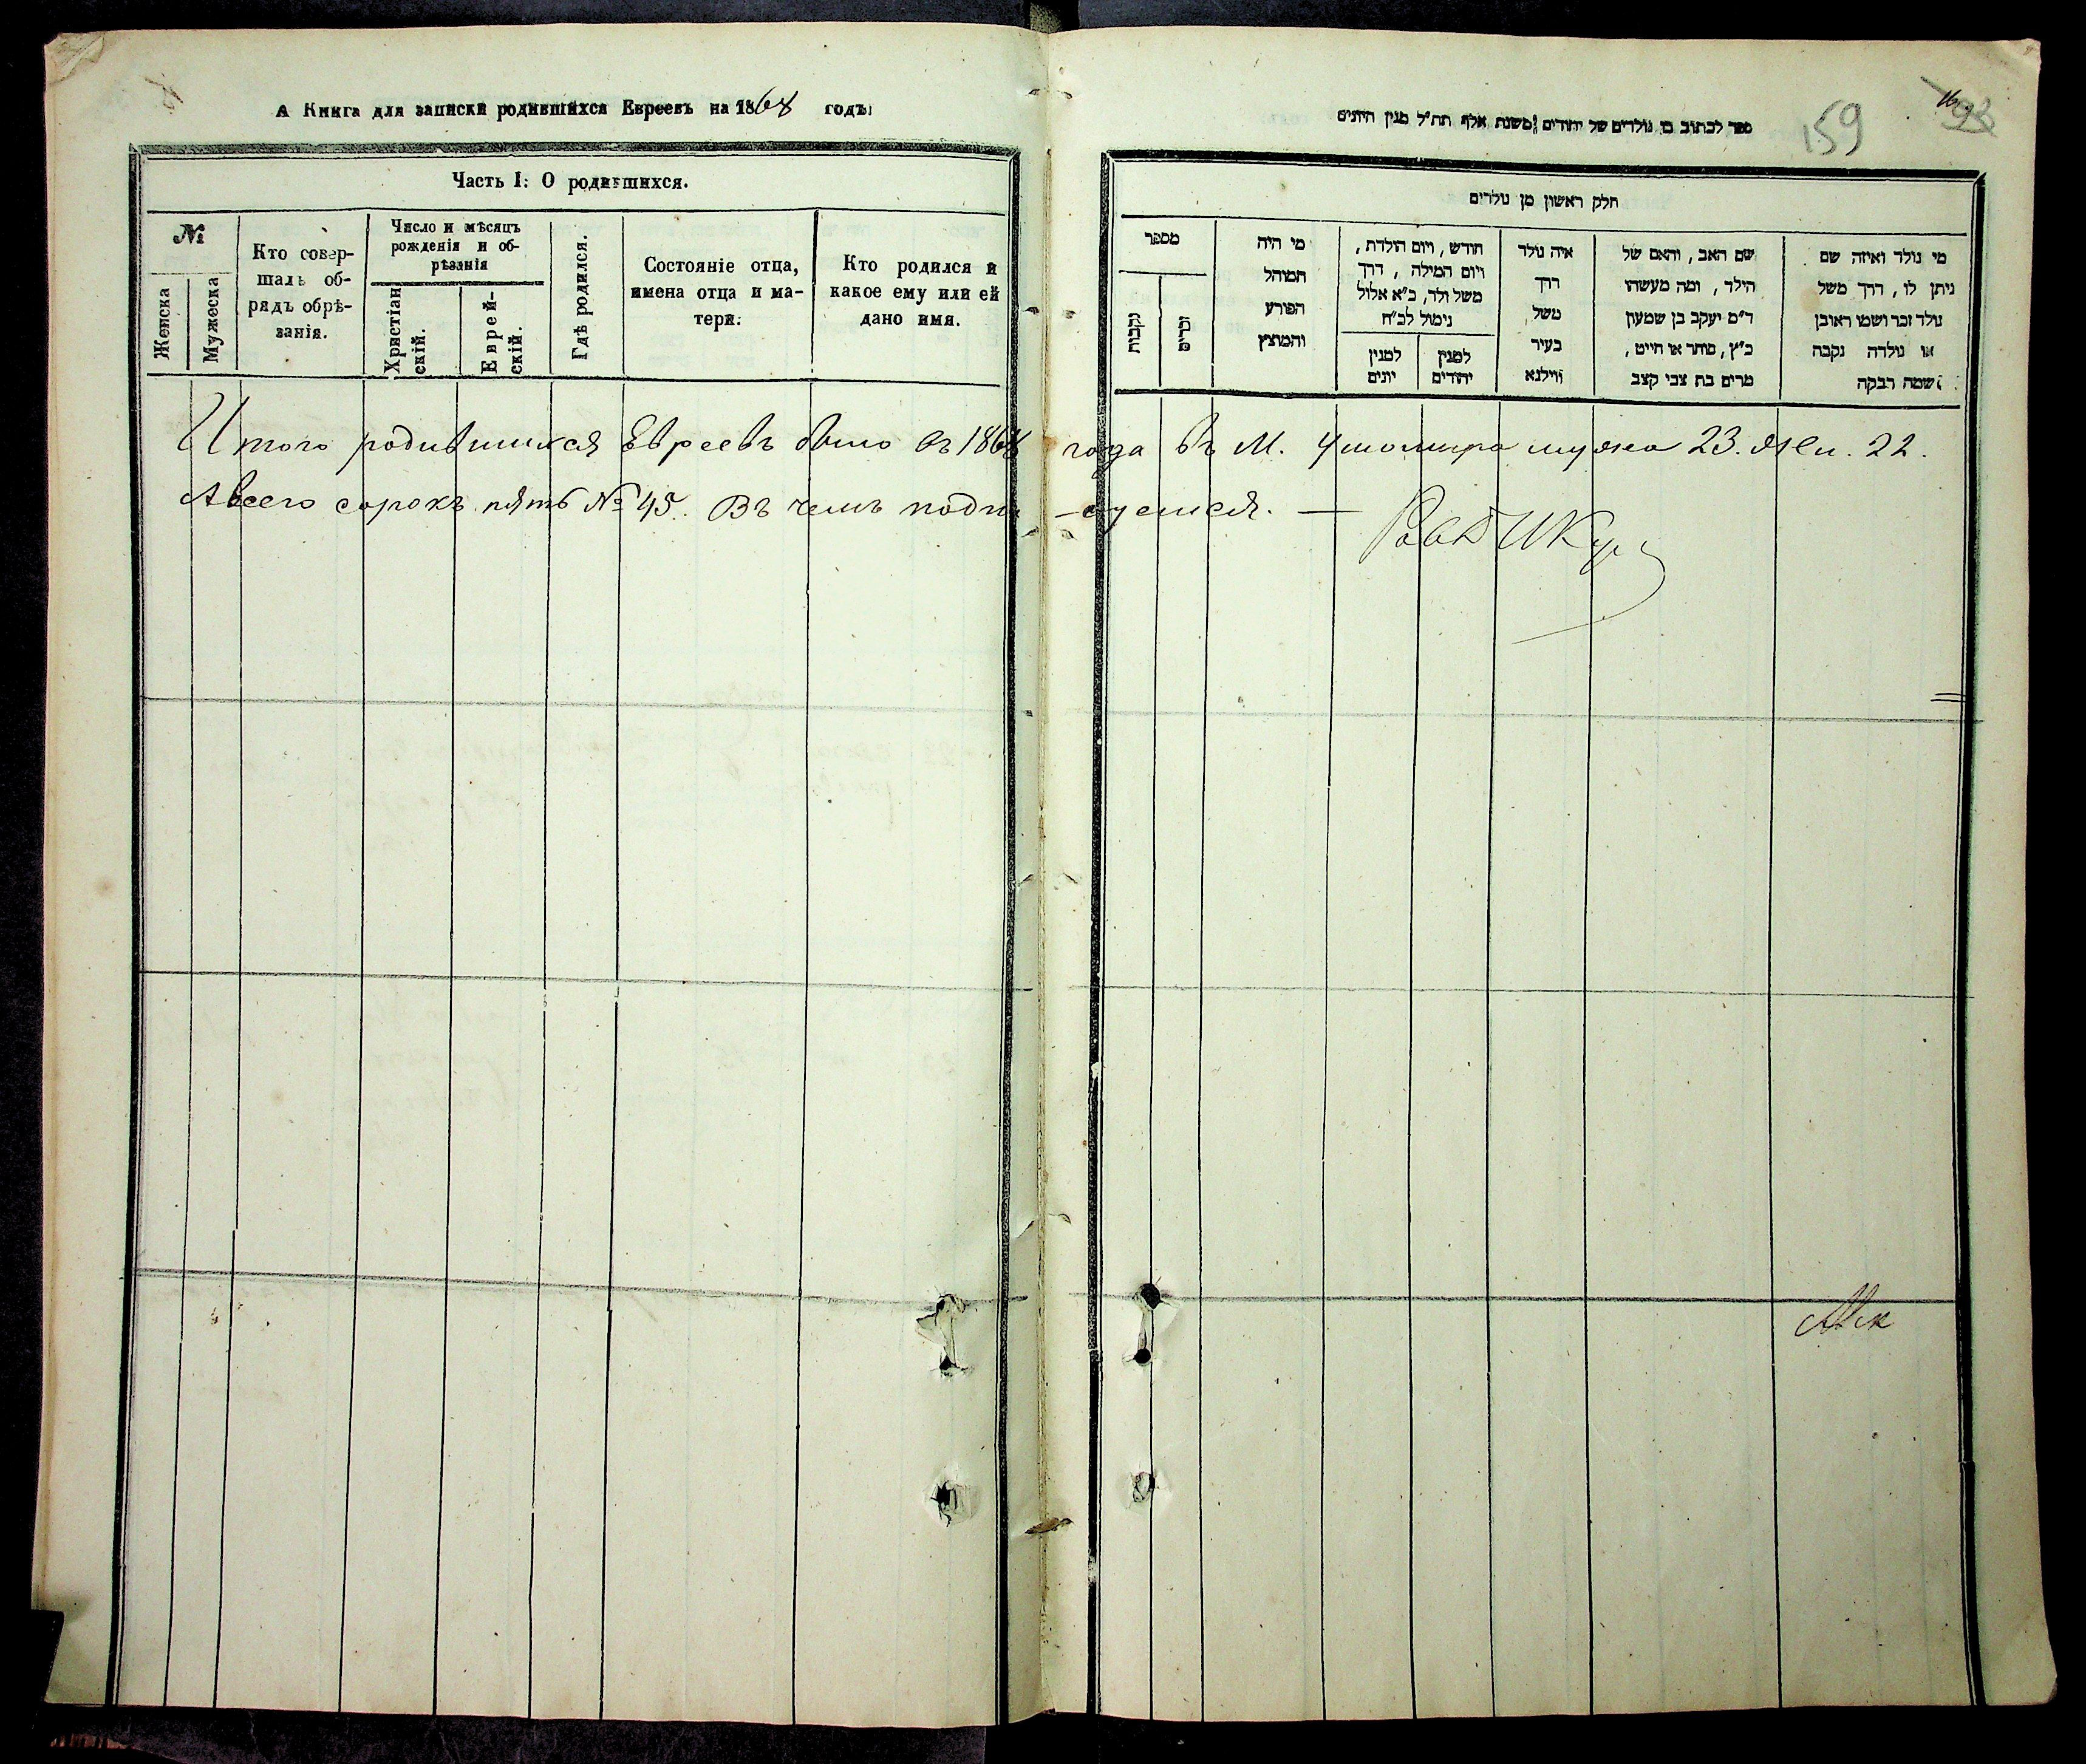 А Книга для записки родившихся Евреевъ на 1868 годъ
Часть I: О родившихся.
№
Женска
Мужеска
Кто совер-
шалъ об-
рядъ обрѣ-
занія.
Число и мѣсяцъ
рожденія и об-
рѣзанія
Христіан
скій.
Еврей-
скій.
Гдѣ родился.
Состояніе отца,
имена отца и ма-
тери.
Кто родился и
какое ему или ей
дано имя.
159
93
16
ספר לכתוב בו נולדים של יהודים משנת אלף תת״ל מנין היונים
חלק ראשון מן נולדים
מספר
נקבות
זכרים
מי היה
המוהל
הפורע
והמוצץ
חודש, ויום הולדת,
ויום המילה, דרך
משל ולד, כ״א אלול
נימול לכ״ח
למנין
יונים
למנין
יהודים
איה נולד
דרך
משל
בעיר
ווילנא
שם האב, והאם של
הילד, ומה מעשהו
ד״מ יעקב בן שמעון
כ״ץ, סוחר או חייט,
מרים בת צבי קצב
מי נולד ואיזה שם
ניתן לו, דרך משל
נולד זכר ושמו ראובן
או נולדה נקבה
ושמה רבקה
Итого родившихся Евреевъ было въ 1868 года въ М. Ушомира мужа 23. Жен. 22.
А всего сорокъ пять № 45. Въ чемъ подпи-суемся. —